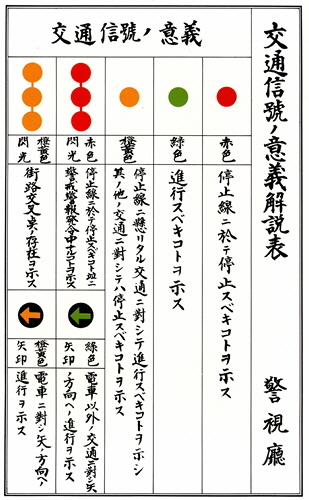 交通信號ノ意義解説表
警視廳
交通信號ノ意義
赤色
停止線ニ於テ停止スベキコトヲ示ス
綠色
進行スベキコトヲ示ス
橙黄色
停止線ニ懸リタル交通ニ對シテ進行スベキコトヲ示シ
其ノ他ノ交通ニ對シテハ停止スベキコトヲ示ス
赤色
閃光
停止線ニ於テ停止スベキコト竝ニ
警戒警報発令中ナルコトヲ示ス
橙黄色
閃光
街路交叉点ノ存在ヲ示ス
綠色
矢印
電車以外ノ交通ニ對シ矢
ノ方向ヘノ進行ヲ示ス
橙黄色
矢印
電車ニ對シ矢ノ方向ヘノ
進行ヲ示ス